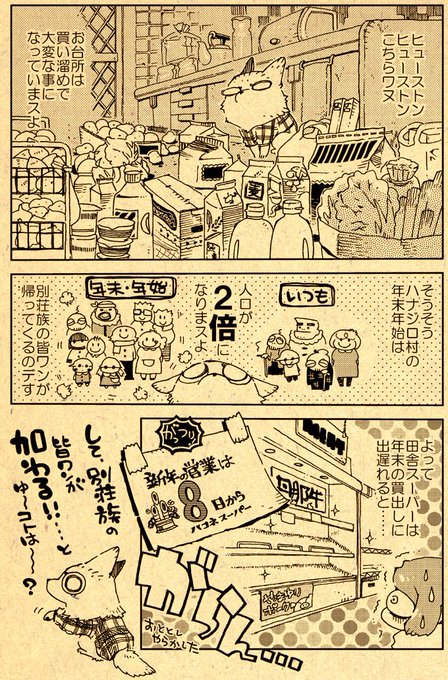 ヒューストン
ヒューストン
こちらワヌ
お台所は
買い溜めで
大変な事に
なっていまスよ
そうそう
ハナジロ村の
年末年始は
いつも
人口が
2倍に
なりまスよ
年末・年始
別荘族の
皆ワンが
帰ってくるのテす
よって
田舎スーパーは
年末の買出しに
出遅れると…
新年の営業は
8日から
ハコネスーパー
がらん…
おととし
やらかした
して、別荘族の
皆ワンが
加わるい…と
ゆーコトは〜?